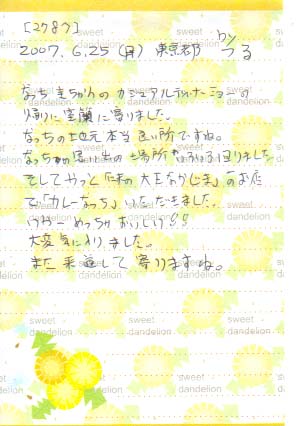 [2787]
2007.6.25(月) 東京都 by つる
なっち まちかねの カジュアルディナーショーの
帰りに室蘭に寄りました。
なっちの地元本当良い所ですね。
なっちの思い出の場所 ぶらぶら回りました
そしてやっと「味の大王なかじま」のお店
で「カレーなっち」いただきました。
いやー めっちゃおいしい!!
大変気に入りました。
また来蘭して寄りますね。
sweet dandelion